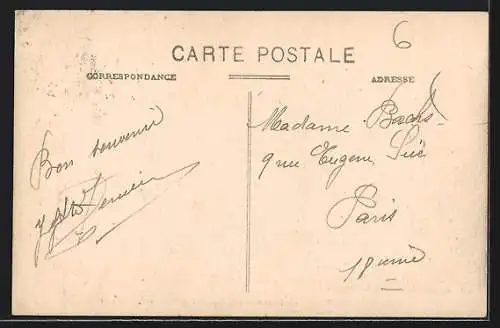 6
CARTE POSTALE
CORRESPONDANCE
ADRESSE
Bon souvenir
Madame Bachs
9 rue Eugène Süe
Paris
18ème